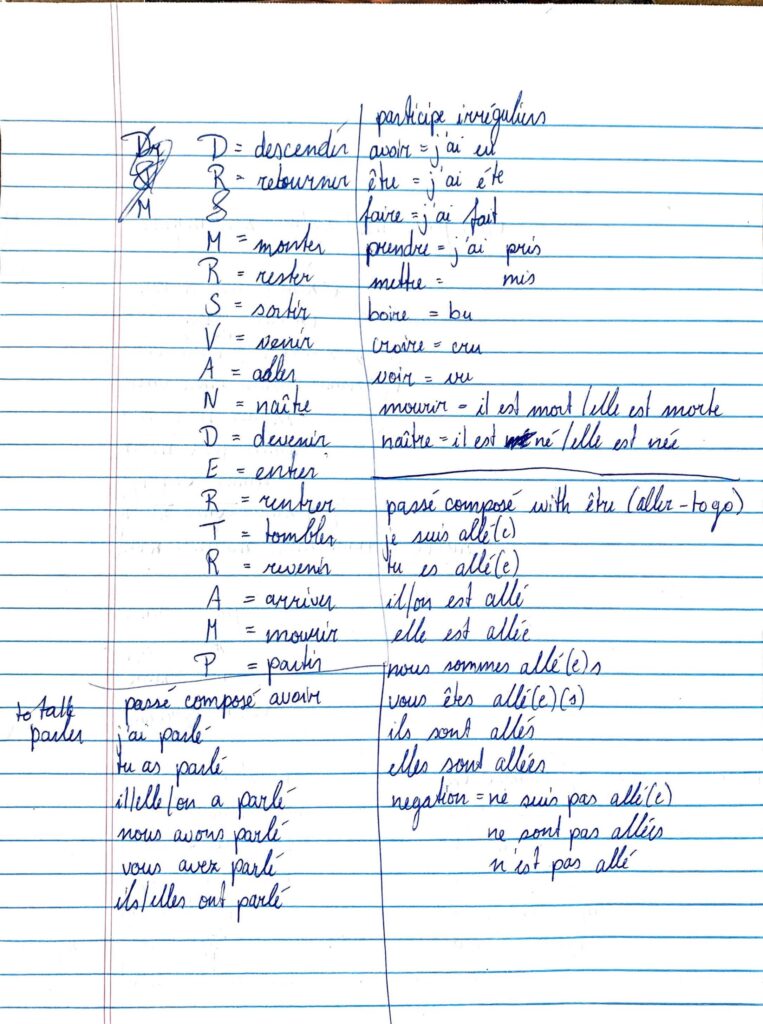 D = descendir
R = retourner
S
M = monter
R = rester
S = sortir
V = venir
A = aller
N = naître
D = devenir
E = entrer
R = rentrer
T = tomber
R = revenir
A = arriver
M = mourir
P = partir
to talk
parler
passé composé avoir
j'ai parlé
tu as parlé
il/elle/on a parlé
nous avons parlé
vous avez parlé
ils/elles ont parlé
participe irréguliers
avoir = j'ai eu
être = j'ai éte
faire = j'ai fait
prendre = j'ai pris
mettre = mis
boire = bu
croire = cru
voir = vu
mourir = il est mort/elle est morte
naître = il est né/elle est née
passé composé with être (aller - to go)
je suis allé(e)
tu es allé(e)
il/on est allé
elle est allée
nous sommes allé(e)s
vous êtes allé(e)(s)
ils sont allés
elles sont allées
negation = ne suis pas allé(e)
ne sont pas allées
n'est pas allé